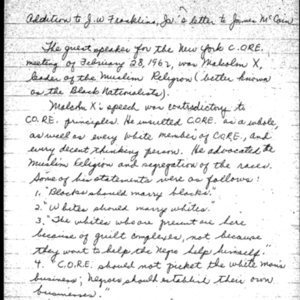 Addition to J.W. Franklins, Jr.'s letter to James McCain
The guest speaker for the New York C.O.R.E.
meeting of February 28, 1962, was Malcolm X,
leader of the Muslim Religion (better known
as the Black Nationalists).
Malcolm X's speech was contradictory to
C.O.R.E. principles. He insulted C.O.R.E. as a whole,
as well as every white member of CORE, and
every decent thinking person. He advocated the
Muslim Religion and segregation of the races.
Some of his statements were as follows:
1. "Blacks should marry blacks."
2. "Whites should marry whites.
3. "The whites who are present are here
because of guilt complexes, not because
they want to help the Negro help himself."
4. C.O.R.E. should not picket the white man's
business; negroes should establish their own
businesses."